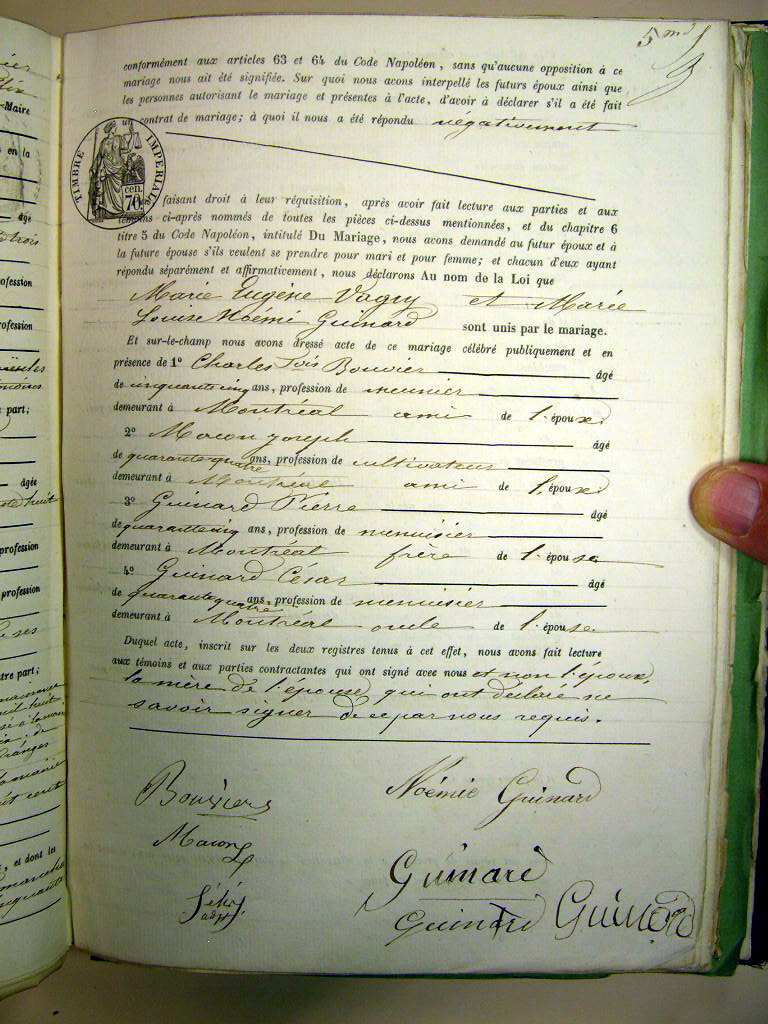 5me
3
conformément aux articles 63 et 64 du Code Napoléon, sans qu'aucune opposition à ce
mariage nous ait été signifiée. Sur quoi nous avons interpellé les futurs époux ainsi que
les personnes autorisant le mariage et présentes à l'acte, d'avoir à déclarer s'il a été fait
contrat de mariage; à quoi il nous a été répondu négativement
TIMBRE IMPERIALE
un
cen.
70.
faisant droit à leur réquisition, après avoir fait lecture aux parties et aux
témoins ci-après nommés de toutes les pièces ci-dessus mentionnées, et du chapitre 6
titre 5 du Code Napoléon, intitulé Du Mariage, nous avons demandé au futur époux et à
la future épouse s'ils veulent se prendre pour mari et pour femme; et chacun d'eux ayant
répondu séparément et affirmativement, nous déclarons Au nom de la Loi que
Marie Eugène Vagny et Marie
Louise Noémi Guinard sont unis par le mariage.
Et sur-le-champ nous avons dressé acte de ce mariage célébré publiquement et en
présence de 1º Charles Bouvier âgé
de cinquante cinq ans, profession de meunier
demeurant à Montréal ami de l'époux
2º Macon joseph âgé
de quarante quatre ans, profession de cultivateur
demeurant à Montréal ami de l'époux
3º Guinard Pierre âgé
de quarante cinq ans, profession de menuisier
demeurant à Montréal frère de l'épouse
4º Guinard César âgé
de quarante quatre ans, profession de menuisier
demeurant à Montréal oncle de l'épouse
Duquel acte, inscrit sur les deux registres tenus à cet effet, nous avons fait lecture
aux témoins et aux parties contractantes qui ont signé avec nous et non l'époux,
la mère de l'épouse qui ont déclaré ne
savoir signer de ce par nous requis.
Bouvier
Noémie Guinard
Macon
Guinard
Guinard
Guinard
Maire
en la
âgé
profession
profession
part;
âgée
profession
profession
tre part;
, et dont les